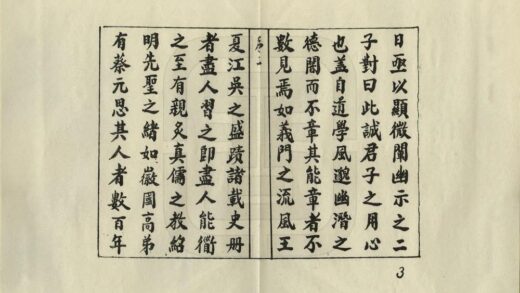 日亟以顯微闡幽示之二
子對曰此誠君子之用心
也蓋自道學風邈幽潛之
德闇而不章其能章者不
數見焉如義門之流風王
夏江吳之盛蹟諸載史冊
者盡人習之即盡人能衢
之至有親炙真儒之教紹
明先聖之緒如徽國高弟
有蔡元思其人者數百年
3